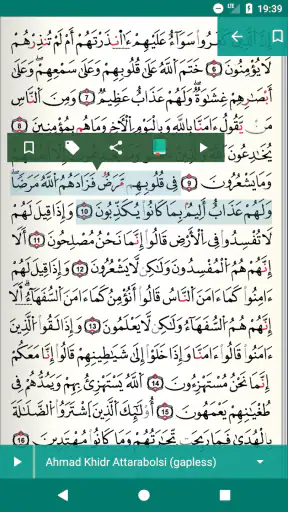 19:39
إِنَّ ٱلَّذِينَ كَفَرُوا۟ سَوَآءٌ عَلَيْهِمْ ءَأَنذَرْتَهُمْ أَمْ لَمْ تُنذِرْهُمْ
لَا يُؤْمِنُونَ 6 خَتَمَ ٱللَّهُ عَلَىٰ قُلُوبِهِمْ وَعَلَىٰ سَمْعِهِمْ ۖ وَعَلَىٰٓ
أَبْصَـٰرِهِمْ غِشَـٰوَةٌ ۖ وَلَهُمْ عَذَابٌ عَظِيمٌ 7 وَمِنَ ٱلنَّاسِ
مَن يَقُولُ ءَامَنَّا بِٱللَّهِ وَبِٱلْيَوْمِ ٱلْـَٔاخِرِ وَمَا هُم بِمُؤْمِنِينَ
يُخَـٰدِعُونَ
وَمَا يَشْعُرُونَ 9 فِى قُلُوبِهِم مَّرَضٌ فَزَادَهُمُ ٱللَّهُ مَرَضًا ۖ
وَلَهُمْ عَذَابٌ أَلِيمٌۢ بِمَا كَانُوا۟ يُكَذِّبُونَ 10 وَإِذَا قِيلَ لَهُمْ
لَا تُفْسِدُوا۟ فِى ٱلْأَرْضِ قَالُوٓا۟ إِنَّمَا نَحْنُ مُصْلِحُونَ 11
إِنَّهُمْ هُمُ ٱلْمُفْسِدُونَ وَلَـٰكِن لَّا يَشْعُرُونَ 12 وَإِذَا قِيلَ لَهُمْ
ءَامِنُوا۟ كَمَآ ءَامَنَ ٱلنَّاسُ قَالُوٓا۟ أَنُؤْمِنُ كَمَآ ءَامَنَ ٱلسُّفَهَآءُ ۗ أَلَآ
إِنَّهُمْ هُمُ ٱلسُّفَهَآءُ وَلَـٰكِن لَّا يَعْلَمُونَ 13 وَإِذَا لَقُوا۟ ٱلَّذِينَ
ءَامَنُوا۟ قَالُوٓا۟ ءَامَنَّا وَإِذَا خَلَوْا۟ إِلَىٰ شَيَـٰطِينِهِمْ قَالُوٓا۟ إِنَّا مَعَكُمْ
إِنَّمَا نَحْنُ مُسْتَهْزِءُونَ 14 ٱللَّهُ يَسْتَهْزِئُ بِهِمْ وَيَمُدُّهُمْ فِى
طُغْيَـٰنِهِمْ يَعْمَهُونَ 15 أُو۟لَـٰٓئِكَ ٱلَّذِينَ ٱشْتَرَوُا۟ ٱلضَّلَـٰلَةَ
بِٱلْهُدَىٰ فَمَا رَبِحَت تِّجَـٰرَتُهُمْ وَمَا كَانُوا۟ مُهْتَدِينَ 16
Ahmad Khidr Attarabolsi (gapless)